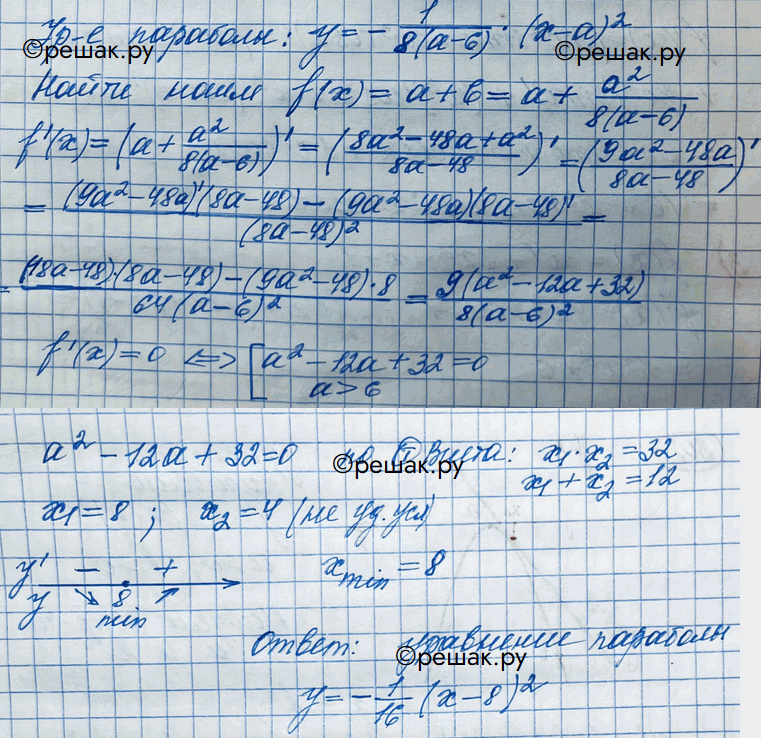 Ур-е параболы: y = - 1/(8(a-6)) · (x-a)²
©решак.ру ©решак.ру
Найти наим f(x) = a + b = a + a²/(8(a-6))
f'(x) = (a + a²/(8(a-6)))' = ((8a²-48a+a²)/(8a-48))' = ((9a²-48a)/(8a-48))'
= ((9a²-48a)'(8a-48) - (9a²-48a)(8a-48)')/(8a-48)² =
©решак.ру ©решак.ру
= ((18a-48)·(8a-48) - (9a²-48)·8)/(64(a-6)²) = 9(a²-12a+32)/(8(a-6)²)
f'(x) = 0 <=> [a²-12a+32=0
a>6
a² - 12a + 32 = 0 по т Виета: x₁·x₂ = 32
©решак.ру
x₁+x₂ = 12
x₁ = 8; x₂ = 4 (не уд. усл)
y' - + xmin = 8
y ↘ 8 ↗
min
Ответ: уравнение параболы
©решак.ру
y = - 1/16 (x-8)²